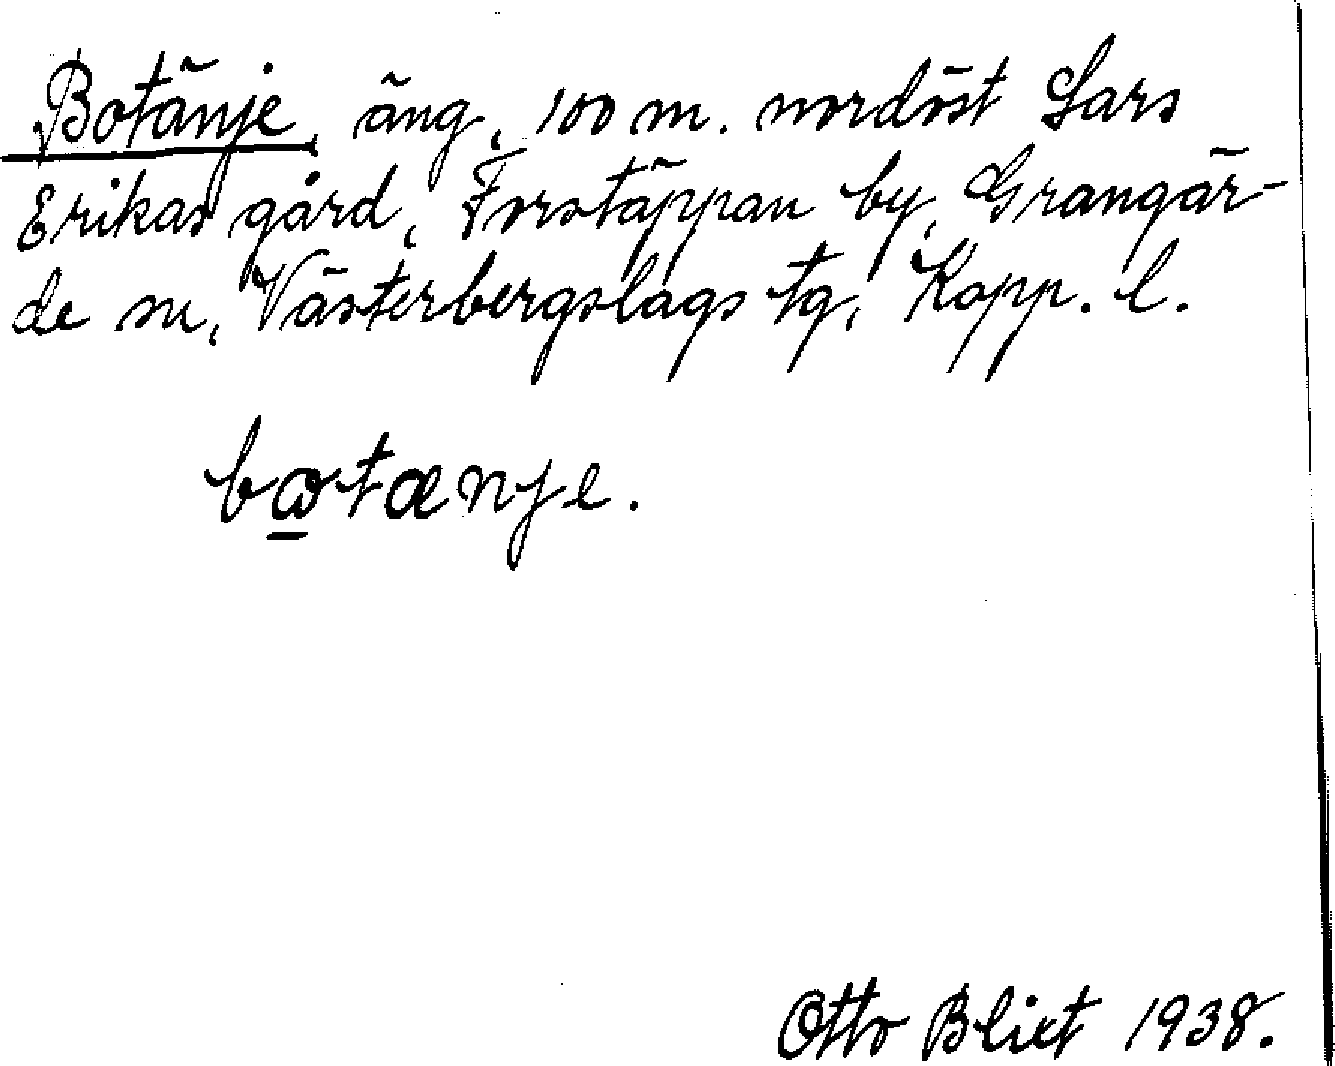 Botänje, äng, 100 m. nordöst Lars
Erikas gård, Forstäppan by, Grangär-
de sn, Västerbergslags tg, Kopp. l.
bɷtænje.
Otto Blixt 1938.